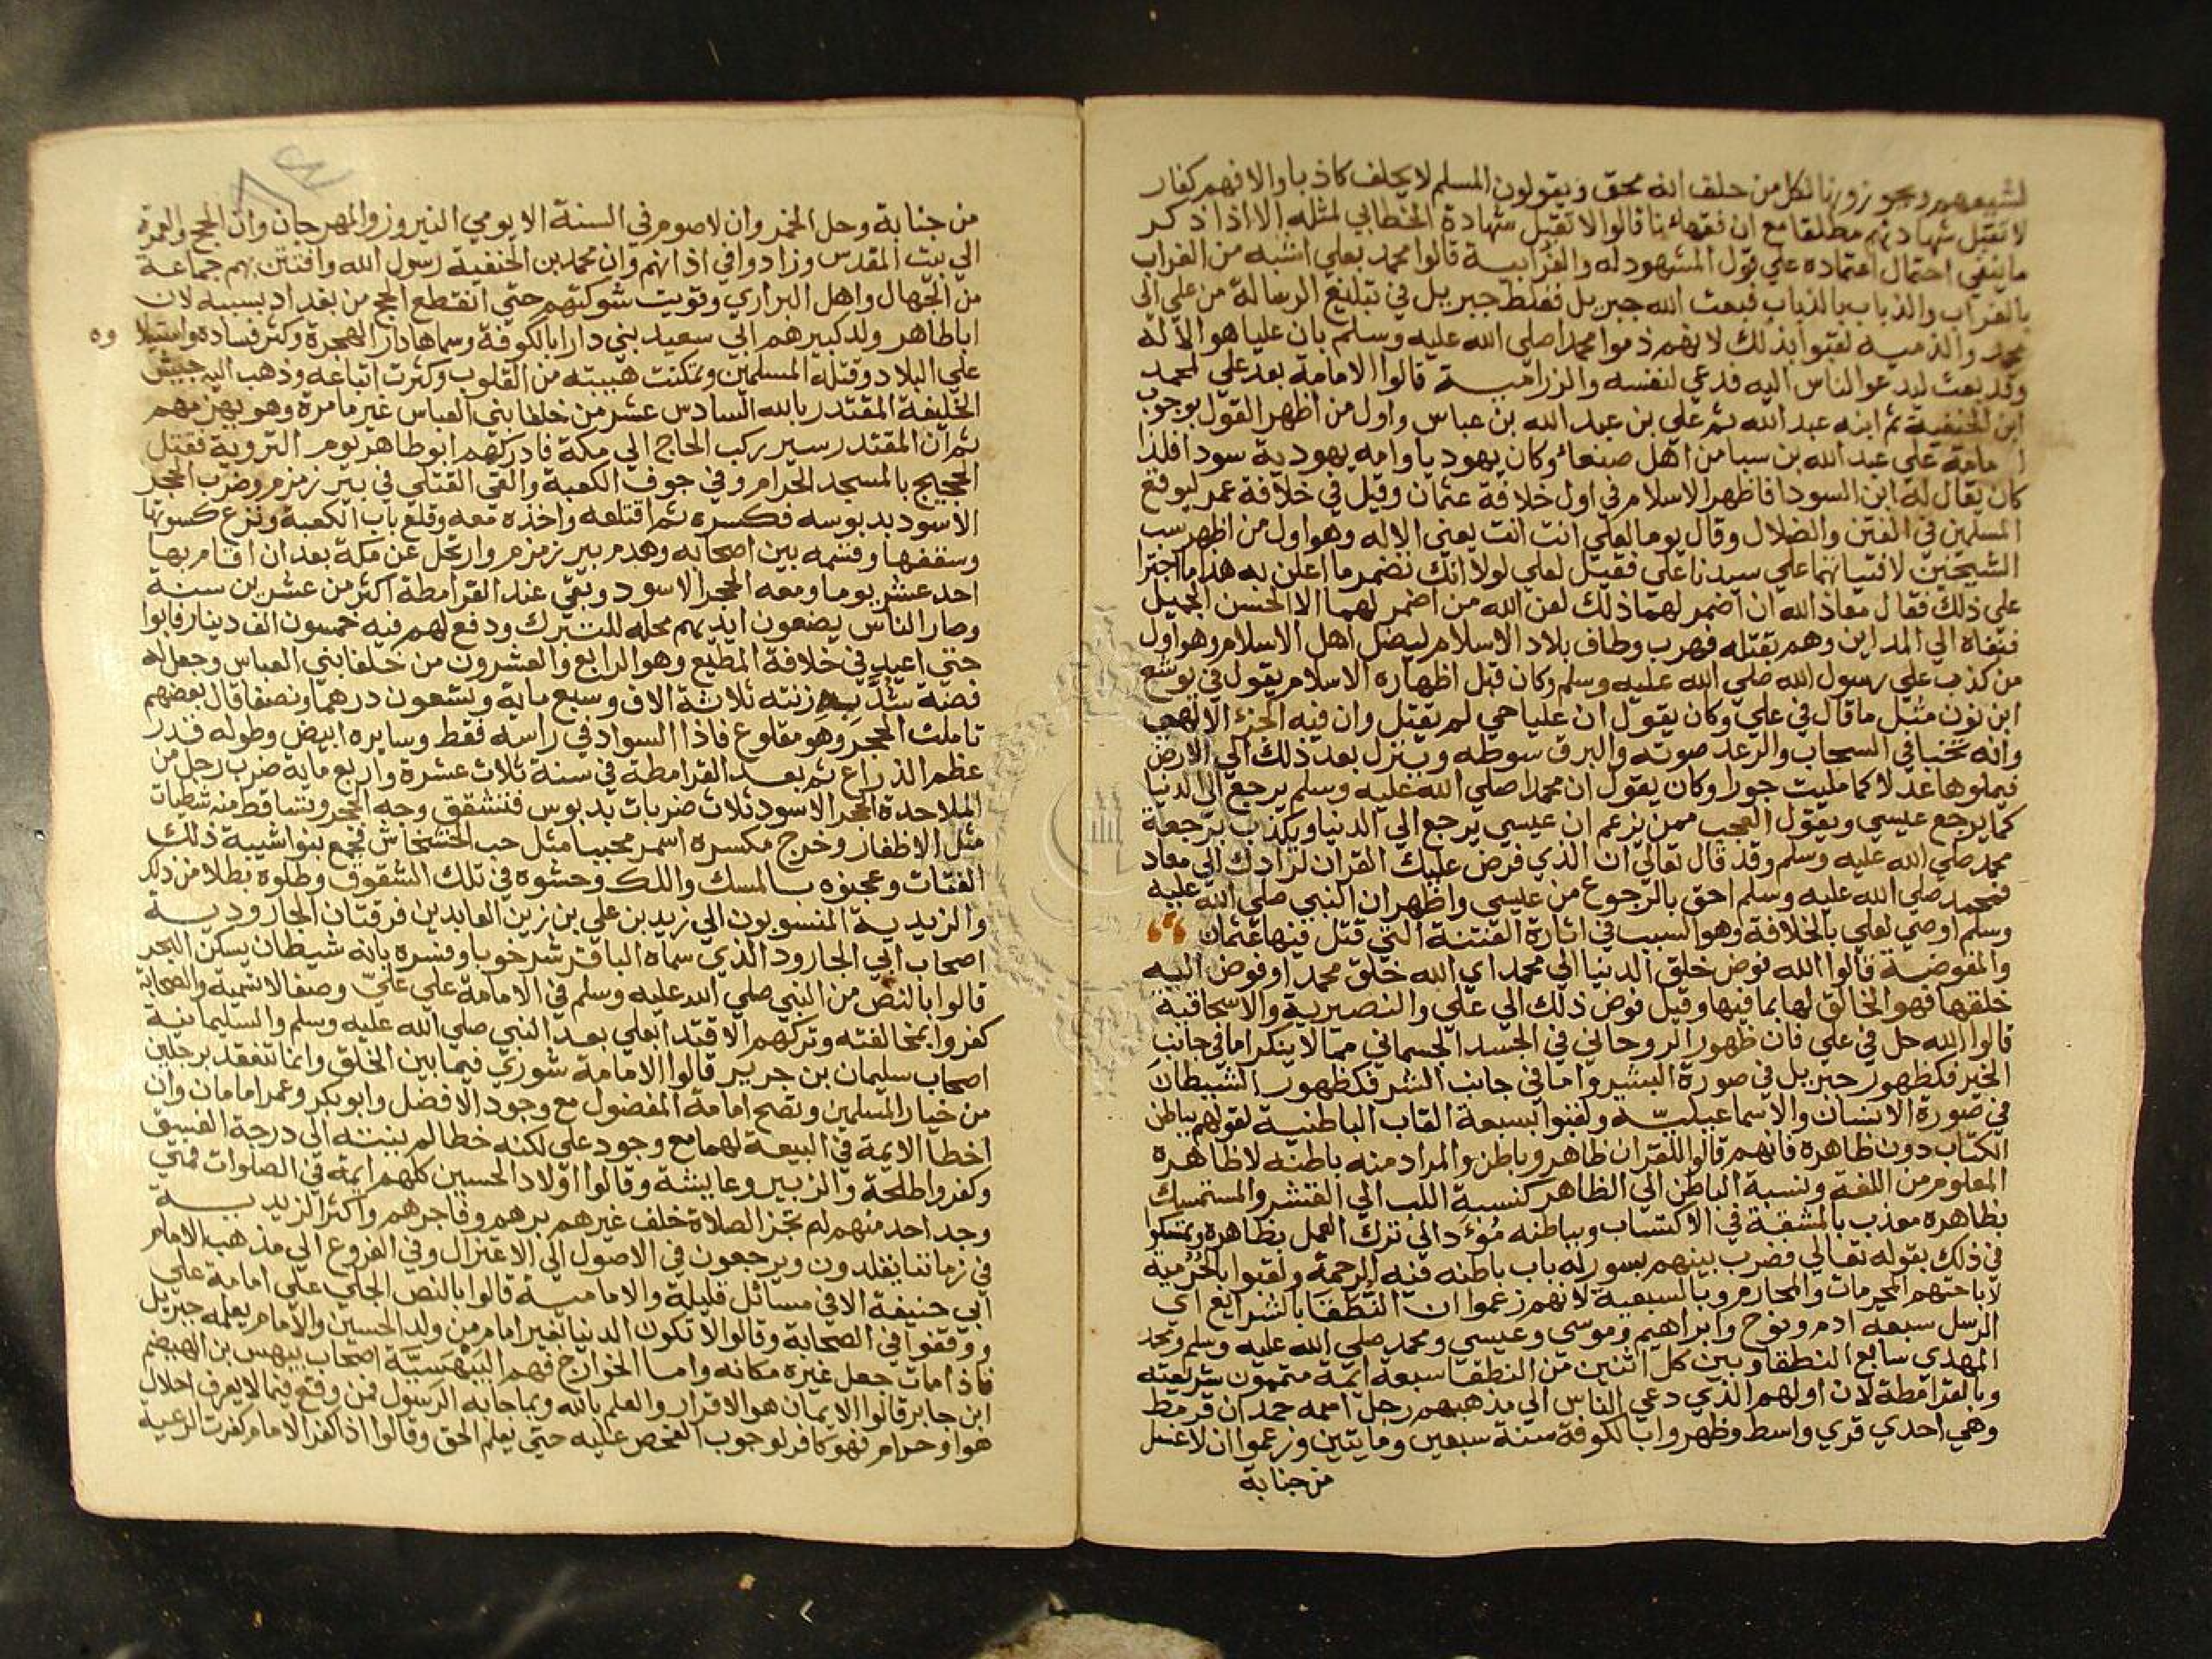 لشيعهم ويجوزونها لكل من حلف انه محق ويقولون المسلم لا يحلف كاذبا والا فهم كفار
لا تقبل شهادتهم مطلقا مع ان فقهائنا قالوا لا تقبل شهادة الخطابي لمثله الا اذا ذكر
ما ينفي احتمال اعتماده علي قول المشهود له والغرابية قالوا محمد بعلي اشبه من الغراب
بالغراب والذباب بالذباب فبعث الله جبريل فغلط جبريل في تبليغ الرسالة من علي الي
محمد والذمية لقبوا بذلك لانهم ذموا محمدا صلي الله عليه وسلم بان عليا هو الاله
وقد بعث ليدعو الناس اليه فدعي لنفسه والزرامية قالوا الامامة بعد علي لمحمد
ابن الحنفية ثم ابنه عبد الله ثم علي بن عبد الله بن عباس واول من اظهر القول بوجوب
امامة علي عبد الله بن سبا من اهل صنعاء وكان يهوديا وامه يهودية سودا فلذا
كان يقال له ابن السودا فاظهر الاسلام في اول خلافة عثمان وقيل في خلافة عمر ليوقع
المسلمين في الفتن والضلال وقال يوما لعلي انت انت يعني الاله وهو اول من اظهر سب
الشيخين لافتياتهما علي سيدنا علي فقيل لعلي لولا انك تضمر ما اعلن به هذا ما اجترا
علي ذلك فقال معاذ الله ان اضمر لهما ذلك لعن الله من اضمر لهما الا الحسن الجميل
فنفاه الي المداين وهم بقتله فهرب وطاف بلاد الاسلام ليضل اهل الاسلام وهو اول
من كذب علي رسول الله صلي الله عليه وسلم وكان قبل اظهاره الاسلام يقول في يوشع
ابن نون مثل ما قال في علي وكان يقول ان عليا حي لم يقتل وان فيه الجزء الالهي
وانه تخبا في السحاب والرعد صوته والبرق سوطه وينزل بعد ذلك الي الارض
فيملوها عدلا كما مليت جورا وكان يقول ان محمدا صلي الله عليه وسلم يرجع الي الدنيا
كما يرجع عيسي ويقول العجب ممن يزعم ان عيسي يرجع الي الدنيا ويكذب برجعة
محمد صلي الله عليه وسلم وقد قال تعالي ان الذي فرض عليك القران لرادك الي معاد
فمحمد صلي الله عليه وسلم احق بالرجوع من عيسي واظهر ان النبي صلي الله عليه
وسلم اوصي لعلي بالخلافة وهو السبب في اثارة الفتنة التي قتل فيها عثمان
والمفوضة قالوا الله فوض خلق الدنيا الي محمد اي الله خلق محمدا وفوض اليه
خلقها فهو الخالق لها بما فيها وقيل فوض ذلك الي علي والنصيرية والاسحاقية
قالوا الله حل في علي فان ظهور الروحاني في الجسد الجسماني مما لا ينكر اما في جانب
الخير فكظهور جبريل في صورة البشير واما في جانب الشر فكظهور الشيطان
في صورة الانسان والاسماعيلية ولقبوا بسبعة القاب الباطنية لقولهم بباطن
الكتاب دون ظاهره فانهم قالوا للقران ظاهر وباطن والمراد منه باطنه لا ظاهره
المعلوم من اللغة ونسبة الباطن الي الظاهر كنسبة اللب الي القشر والمستمسك
بظاهره معذب بالمشقة في الاكتساب وبباطنه مؤد الي ترك العمل بظاهره وتمسكوا
في ذلك بقوله تعالي فضرب بينهم بسور له باب باطنه فيه الرحمة ولقبوا بالحرمية
لاباحتهم المحرمات والمحارم وبالسبعية لانهم زعموا ان النطقا بالشرايع اي
الرسل سبعه ادم ونوح وابراهيم وموسي وعيسي ومحمد صلي الله عليه وسلم ومحمد
المهدي سابع النطقا وبين كل اثنين من النطقا سبعة ايمة متممون شريعته
وبالقرامطة لان اولهم الذي دعي الناس الي مذهبهم رجل اسمه حمدان قرمط
وهي احدي قري واسط وظهروا بالكوفة سنة سبعين ومايتين وزعموا ان لا غسل
من جنابة
من جنابة وحل الخمر وان لا صوم في السنة الا يومي النيروز والمهرجان وان الحج والعمرة
الي بيت المقدس وزادوا في اذانهم وان محمد بن الحنفية رسول الله وافتتن بهم جماعة
من الجهال واهل البراري وقويت شوكتهم حتي انقطع الحج من بغداد بسببه لان
ابا طاهر ولد كبيرهم ابي سعيد بني دارا بالكوفة وسماها دار الهجرة وكثر فساده واستيلاوه
علي البلاد وقتله المسلمين وتمكنت هيبته من القلوب وكثرت اتباعه وذهب اليه جيش
الخليفة المقتدر بالله السادس عشر من خلفا بني العباس غير ما مرة وهو يهزمهم
ثم ان المقتدر سير ركب الحاج الي مكة فادركهم ابو طاهر يوم التروية فقتل
الحجيج بالمسجد الحرام وفي جوف الكعبة والقي القتلي في بير زمزم وضرب الحجر
الاسود بدبوسه فكسره ثم اقتلعه واخذه معه وقلع باب الكعبة ونزع كسوتها
وسقفها وقسمه بين اصحابه وهدم بير زمزم وارتحل عن مكة بعد ان اقام بها
احد عشر يوما ومعه الحجر الاسود وبقي عند القرامطة اكثر من عشرين سنة
وصار الناس يضعون ايديهم محله للتبرك ودفع لهم فيه خمسون الف دينار فابوا
حتي اعيد في خلافة المطيع وهو الرابع والعشرون من خلفا بني العباس وجعل له
فضة شد بها زنته ثلاثة الاف وسبع ماية وتسعون درهما ونصفا قال بعضهم
تاملت الحجر وهو مقلوع فاذا السواد في راسه فقط وسايره ابيض وطوله قدر
عظم الذراع ثم بعد القرامطة في سنة ثلاث عشرة واربع ماية ضرب رجل من
الملاحدة الحجر الاسود ثلاث ضربات بدبوس فتشقق وجه الحجر وتساقط منه شظيات
مثل الاظفار وخرج مكسره اسمر محببا مثل حب الخشخاش فجمع بنو شيبة ذلك
الفتات وعجنوه بالمسك واللك وحشوه في تلك الشقوف وطلوه بطلا من ذلك
والزيدية المنسوبون الي زيد بن علي بن زين العابدين فرقتان الجارودية
اصحاب ابي الجارود الذي سماه الباقر شرخوبا وفسره بانه شيطان يسكن البحر
قالوا بالنص من النبي صلي الله عليه وسلم في الامامة علي علي وصفا لا تسمية والصحابة
كفروا بمخالفته وتركهم الاقتدا بعلي بعد النبي صلي الله عليه وسلم والسليمانية
اصحاب سليمان بن جرير قالوا الامامة شوري فيما بين الخلق وانما تنعقد برجلين
من خيار المسلمين وتصح امامة المفضول مع وجود الافضل وابو بكر وعمر امامان وان
اخطا الايمة في البيعة لهما مع وجود علي لكنه خطا لم ينته الي درجة الفسق
وكفروا طلحة والزبير وعايشة وقالوا اولاد الحسين كلهم ايمة في الصلوات فمتي
وجد احد منهم لم تجز الصلاة خلف غيرهم برهم وفاجرهم واكثر الزيدية
في زماننا يقلدون ويرجعون في الاصول الي الاعتزال وفي الفروع الي مذهب الامام
ابي حنيفة الا في مسائل قليلة والامامية قالوا بالنص الجلي علي امامة علي
ووقعوا في الصحابة وقالوا لا تكون الدنيا بغير امام من ولد الحسين والامام يعلمه جبريل
فاذا مات جعل غيره مكانه واما الخوارج فهم البيهسية اصحاب بيهس بن الهيصم
ابن جابر قالوا الايمان هو الاقرار والعلم بالله وبما جا به الرسول فمن وقع فيما لا يعرف احلال
هو او حرام فهو كافر لوجوب الفحص عليه حتي يعلم الحق وقالوا اذا كفر الامام كفرت الرعية